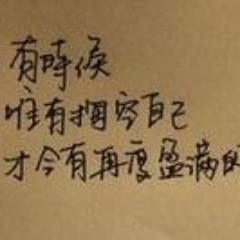 有時候
惟有掏空自己
才会有再度盈满的